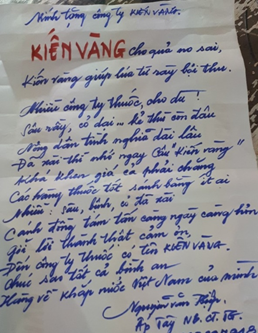 Mình tặng công ty KIẾN VÀNG.
KIẾN VÀNG cho quả no sai,
Kiến vàng giúp lúa từ nay bội thu.
Nhiều công ty thuốc, cho dù!
Sâu rầy, cỏ dại... kẻ thù còn đâu
Nông dân tình nghĩa dài lâu
Đã xài thì nhớ ngay câu "Kiến vàng"
khen giá cả phải chăng
Các hàng thuốc tốt sánh bằng ai
Nhiều: sâu, bệnh, cỏ đã xài
Canh đồng tấm tắc càng ngày càng
lời thành thật cảm ơn
Đến công ty thuốc có tên KIẾN VÀNG.
Chúc sao tất cả bình an
Hướng về khắp nước Việt Nam của mình
Nguyễn văn
Ấp Tây